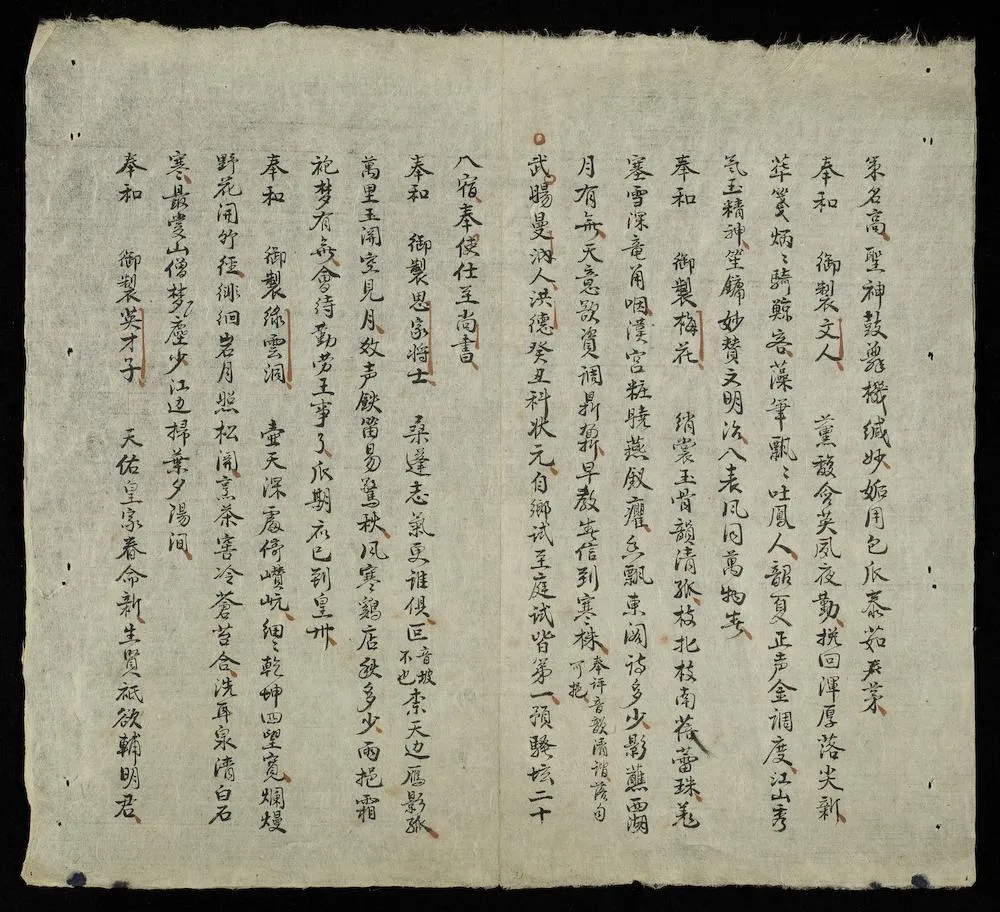 策名高聖神鼓舞機緘妙姤用包瓜泰茹茅
奉和 御製文人 薰馥含英夙夜勤挽回渾厚落尖新
華箋炳〻騎鯨客藻筆飄〻吐鳳人韶夏正声金調度江山秀
氣玉精神笙鏞妙贊文明治八表同萬物春
奉和 御製梅花 綃裳玉骨韻清孤枝北枝南蓓蕾珠羌
塞雪深竜甬咽漢宮粧曉燕釵癯香飄東閣詩多少影蘸西湖
月有無天意欲資調鼎早教春信到寒株奉評音韻清諧落句可挹
武暘曼人洪德癸丑科状元自鄉試至庭試皆第一預騷坛二十
八宿奉使仕至尚書
奉和 御製思家将士 桑蓬志氣更誰俱叵音坡不也柰天边鴈影孤
萬里玉關空見月数声鉄笛易驚秋風寒鷄店愁多少雨挹霜
袍梦有無會待勤劳王事了瓜期衣已到皇州
奉和 御製綠雲洞 壺天深處倚巑岏細〻乾坤四望寬爛熳
野花開竹徑徘徊岩月照松関烹茶窖冷蒼苔合洗耳泉清白石
寒最愛山僧梦塵少江边掃葉夕陽间
奉和 御製英才子 天佑皇家眷命新生賢祗欲輔明君